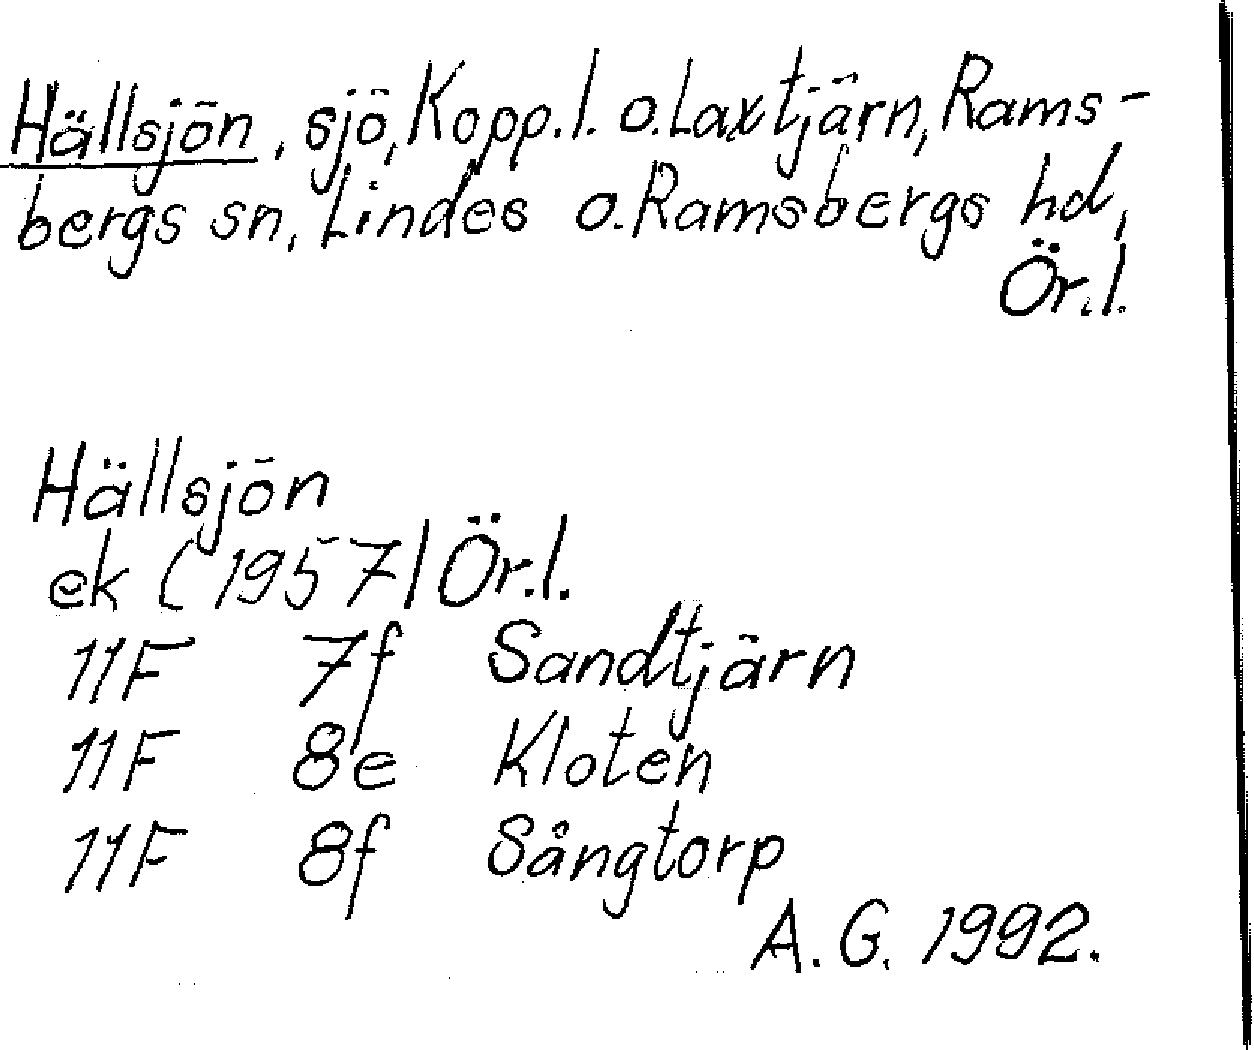 Hällsjön, sjö, Kopp.l. o. Laxtjärn, Rams-
bergs sn, Lindes o. Ramsbergs hd,
Ör.l.
Hällsjön
ek (1957) Ör.l.
11F 7f Sandtjärn
11F 8e Kloten
11F 8f Sångtorp
A.G. 1992.